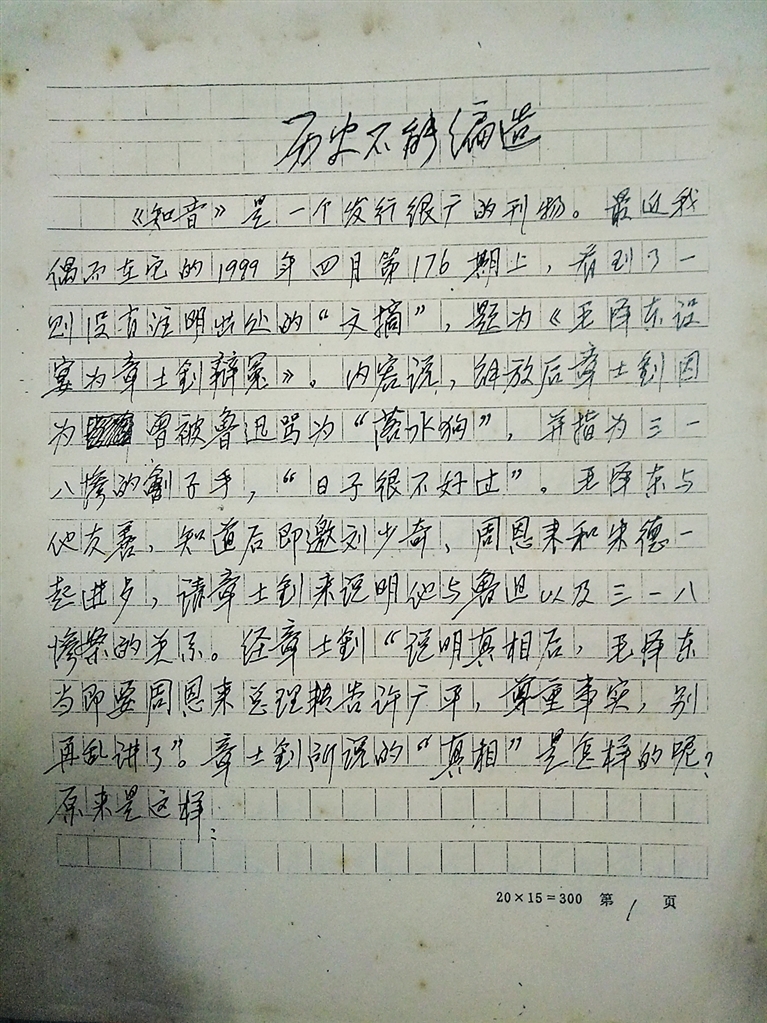 历史不能编造
《知音》是一个发行很广的刊物。最近我
偶而在它的1999年四月第176期上，看到了一
则没有注明出处的“文摘”，题为《毛泽东设
宴为章士钊辩冤》。内容说，解放后章士钊因
为曾被鲁迅骂为“落水狗”，并指为三一
八惨的刽子手，“日子很不好过”。毛泽东与
他友善，知道后即邀刘少奇、周恩来和朱德一
起进夕，请章士钊来说明他与鲁迅以及三一八
惨案的关系。经章士钊“说明真相后，毛泽东
当即要周恩来总理转告许广平，尊重事实，别
再乱讲了”。章士钊所说的“真相”是怎样的呢？
原来是这样：
20×15=300 第 1 页